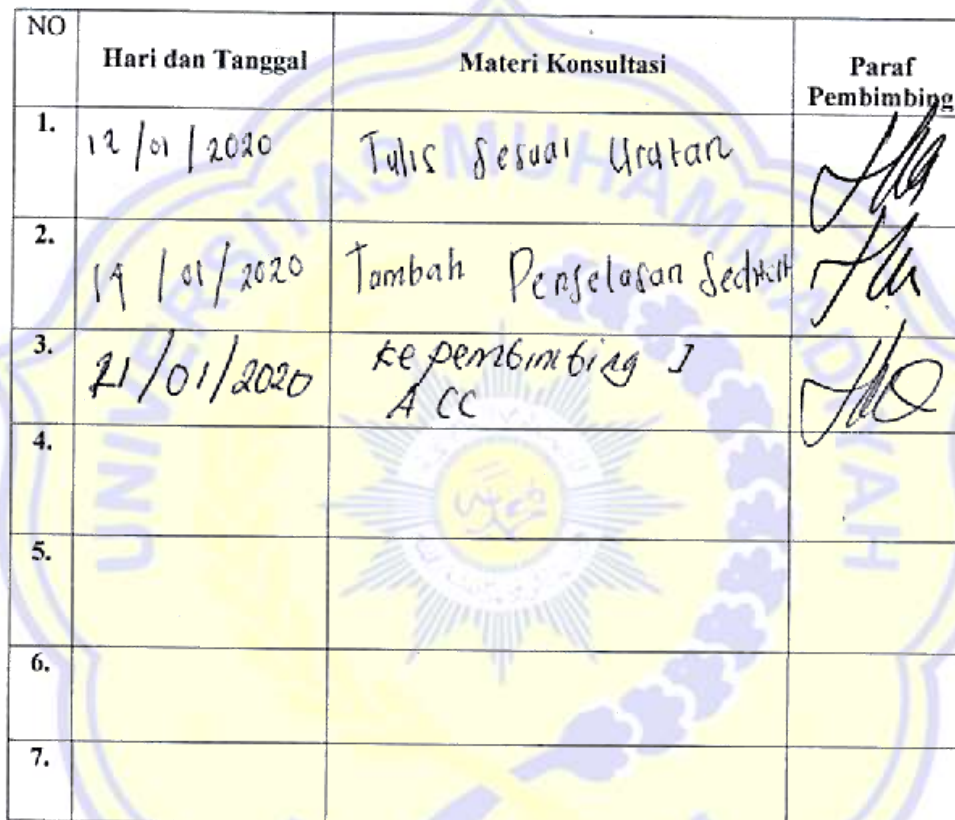 NO Hari dan Tanggal Materi Konsultasi Paraf
Pembimbing
1. 12/01/2020 Tulis Sesuai Urutan
2. 19/01/2020 Tambah Penjelasan
3. 21/01/2020 Ke pembimbing I
ACC
4.
5.
6.
7.
UNIVERSITAS MUHAMMADIYAH